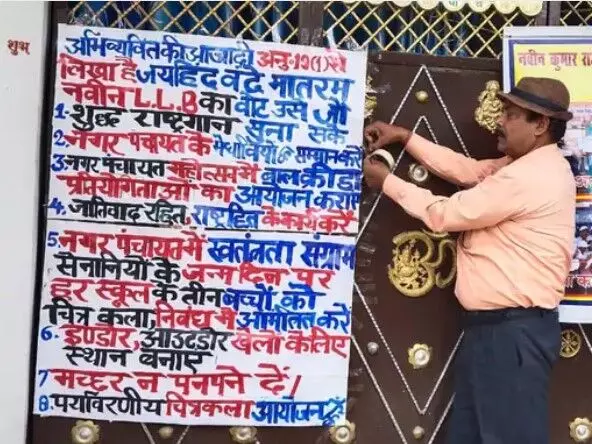 शुभ
अभिव्यक्ति की आजादी अनु-19(1) से
लिखा है जयहिंद वंदे मातरम
नवीन L.L.B का वोट उसे जो
1. शुद्ध राष्ट्रगान सुना सके
2. नगर पंचायत के मेधावियों का सम्मान करें
3. नगर पंचायत महोत्सव में बाल क्रीडा
प्रतियोगताओं का आयोजन कराए
4. जातिवाद रहित, राष्ट्रहित के कार्य करें
5. नगर पंचायत में स्वतंत्रता संग्राम
सेनानियों के जन्म दिन पर
हर स्कूल के तीन बच्चों को
चित्र कला, निवंध में आमंत्रित करें
6. इण्डोर, आउटडोर खेलो के लिए
स्थान बनाए
7 मच्छर न पनपने दें।
8. पर्यावरणीय चित्रकला आयोजन हूँ
नवीन कुमार